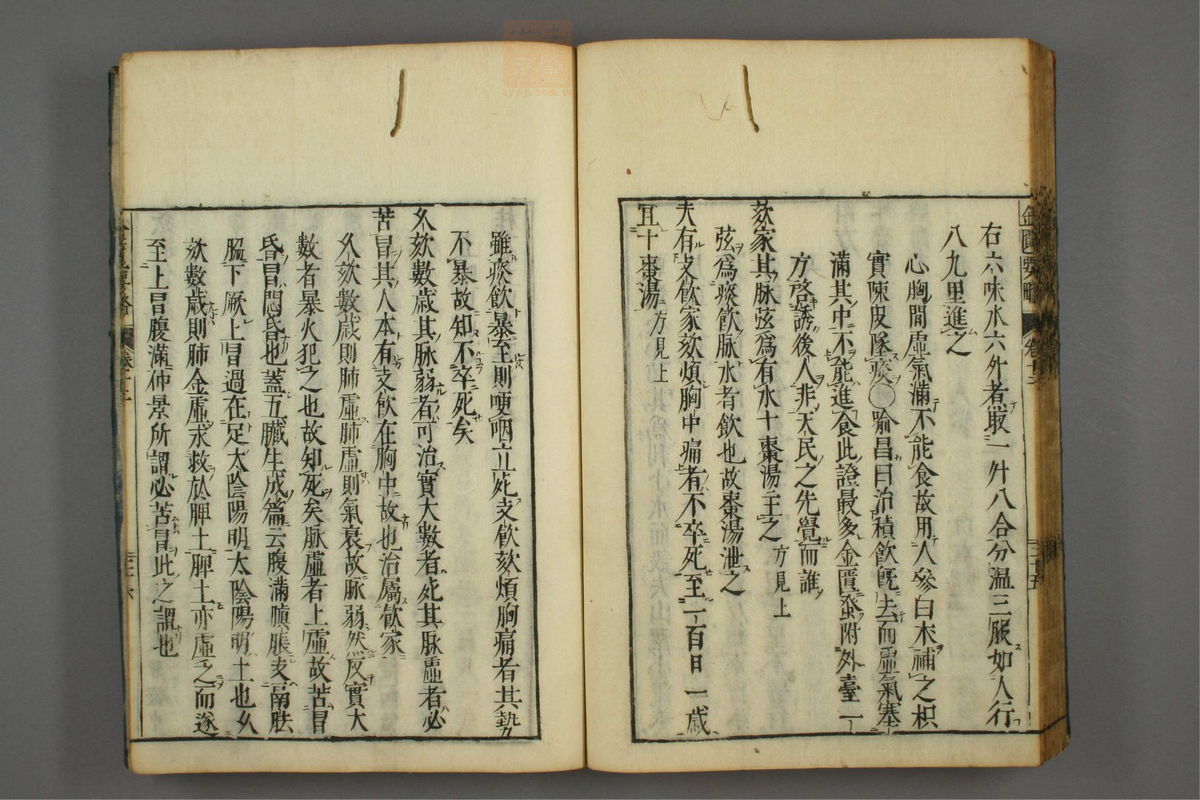 右六味水六升煮取一升八合分温三服如人行
八九里進之
心胸間虛氣滿不能食故用人參白朮補之枳
實陳皮墜痰○喻昌曰治積飲既去而虛氣塞
滿其中不能進食此證最多金匱蚤附外臺一
方啓誘後人非天民之先覺而誰
欬家其脉弦爲有水十棗湯主之方見上
弦爲痰飲脉水者飲也故棗湯泄之
夫有支飲家欬煩胸中痛者不卒死至一百日一歲
宜十棗湯方見上
雖痰飲暴至則哽咽立死支飲欬煩胸痛者其勢
不暴故知不卒死矣
久欬數歲其脉弱者可治實大數者死其脉虛者必
苦冒其人本有支飲在胸中故也治屬飲家
久欬數歲則肺虛肺虛則氣衰故脉弱然反實大
數者暴火犯之也故知死矣脉虛者上虛故苦冒
昏冒悶昏也蓋五臟生成篇云腹滿䐜脹支鬲胠
脇下厥上冒過在足太陰陽明太陰陽明土也久
欬數歲則肺金虛求救於脾土脾土亦虛之而遂
至上冒腹滿仲景所謂必苦冒此之謂也